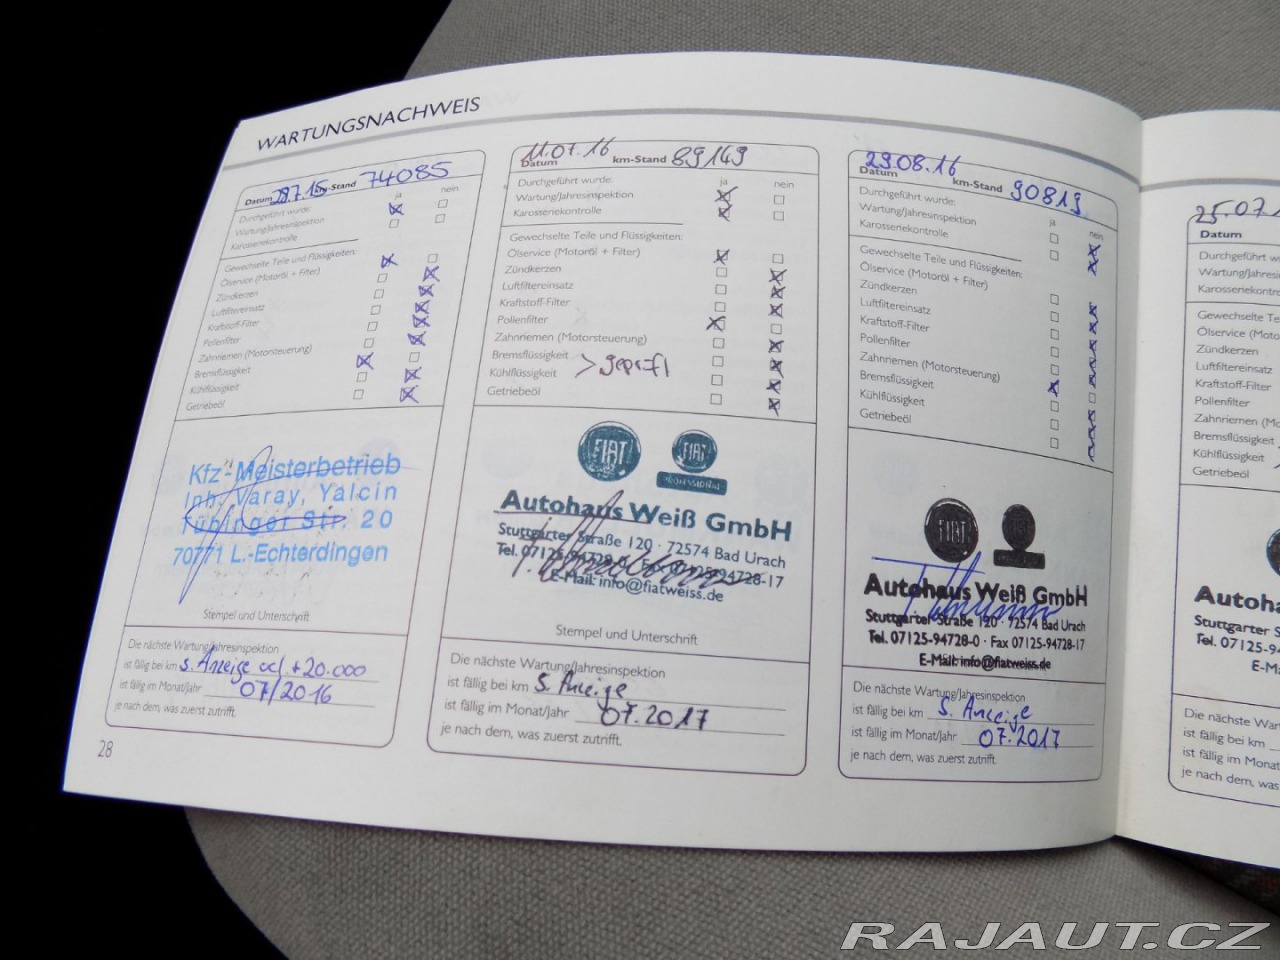 WARTUNGSNACHWEIS
Datum 29.7.15 km-Stand 74085
ja nein
Durchgeführt wurde:
Wartung/Jahresinspektion
Karosseriekontrolle
Gewechselte Teile und Flüssigkeiten:
Ölservice (Motoröl + Filter)
Zündkerzen
Luftfiltereinsatz
Kraftstoff-Filter
Pollenfilter
Zahnriemen (Motorsteuerung)
Bremsflüssigkeit
Kühlflüssigkeit
Getriebeöl
Kfz-Meisterbetrieb
Inh. Varay, Yalcin
Tübinger Str. 20
70771 L.-Echterdingen
Stempel und Unterschrift
Die nächste Wartung/Jahresinspektion
ist fällig bei km s. Anzeige +20.000
ist fällig im Monat/Jahr 07/2016
je nach dem, was zuerst zutrifft.
28
11.07.16 89149
Datum km-Stand
ja nein
Durchgeführt wurde:
Wartung/Jahresinspektion
Karosseriekontrolle
Gewechselte Teile und Flüssigkeiten:
Ölservice (Motoröl + Filter)
Zündkerzen
Luftfiltereinsatz
Kraftstoff-Filter
Pollenfilter
Zahnriemen (Motorsteuerung)
Bremsflüssigkeit
Kühlflüssigkeit > geprüft
Getriebeöl
FIAT FIAT
PROFESSIONAL
Autohaus Weiß GmbH
Stuttgarter Straße 120 · 72574 Bad Urach
Tel. 07125-94728-0 · Fax 07125-94728-17
E-Mail: info@fiatweiss.de
Stempel und Unterschrift
Die nächste Wartung/Jahresinspektion
ist fällig bei km s. Anzeige
ist fällig im Monat/Jahr 07.2017
je nach dem, was zuerst zutrifft.
29.08.16
Datum km-Stand 90819
ja nein
Durchgeführt wurde:
Wartung/Jahresinspektion
Karosseriekontrolle
Gewechselte Teile und Flüssigkeiten:
Ölservice (Motoröl + Filter)
Zündkerzen
Luftfiltereinsatz
Kraftstoff-Filter
Pollenfilter
Zahnriemen (Motorsteuerung)
Bremsflüssigkeit
Kühlflüssigkeit
Getriebeöl
FIAT
Autohaus Weiß GmbH
Stuttgarter Straße 120 · 72574 Bad Urach
Tel. 07125-94728-0 · Fax 07125-94728-17
E-Mail: info@fiatweiss.de
Die nächste Wartung/Jahresinspektion
ist fällig bei km s. Anzeige
ist fällig im Monat/Jahr 07.2017
je nach dem, was zuerst zutrifft.
25.07.1
Datum
Durchgeführt w
Wartung/Jahresin
Karosseriekontrol
Gewechselte Teile
Ölservice (Motor
Zündkerzen
Luftfiltereinsatz
Kraftstoff-Filter
Pollenfilter
Zahnriemen (Mo
Bremsflüssigkeit
Kühlflüssigkeit
Getriebeöl
Autoha
Stuttgarter S
Tel. 07125-94
E-Ma
Die nächste Wart
ist fällig bei km
ist fällig im Monat
je nach dem, was
RAJAUT.CZ